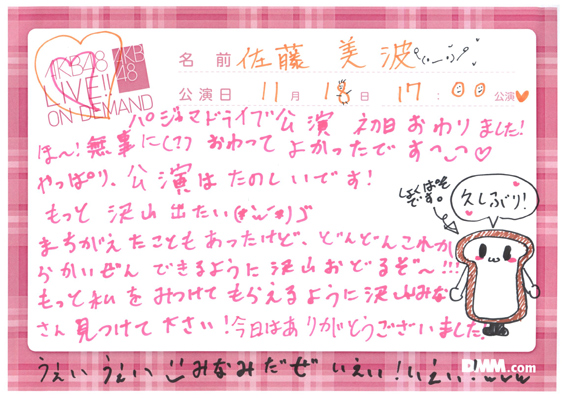 AKB48 LIVE!! ON DEMAND
AKB48
名前 佐藤 美波
公演日 11月 18日 17:00 公演
パジャマドライブ公演 初日おわりました!
ほ〜!無事に(??) おわって よかったです
やっぱり、公演はたのしいです!
もっと 沢山 出たい
まちがえたこともあったけど、どんどんこれか
らかいぜん できるように沢山おどるぞ〜!!!
もっと私をみつけてもらえるように沢山みな
さん見つけて下さい!今日はありがとうございました!
しょくぱんもです。
久しぶり!
うぇい うぇい みなみだぜ いえい!いえい!
DMM.com